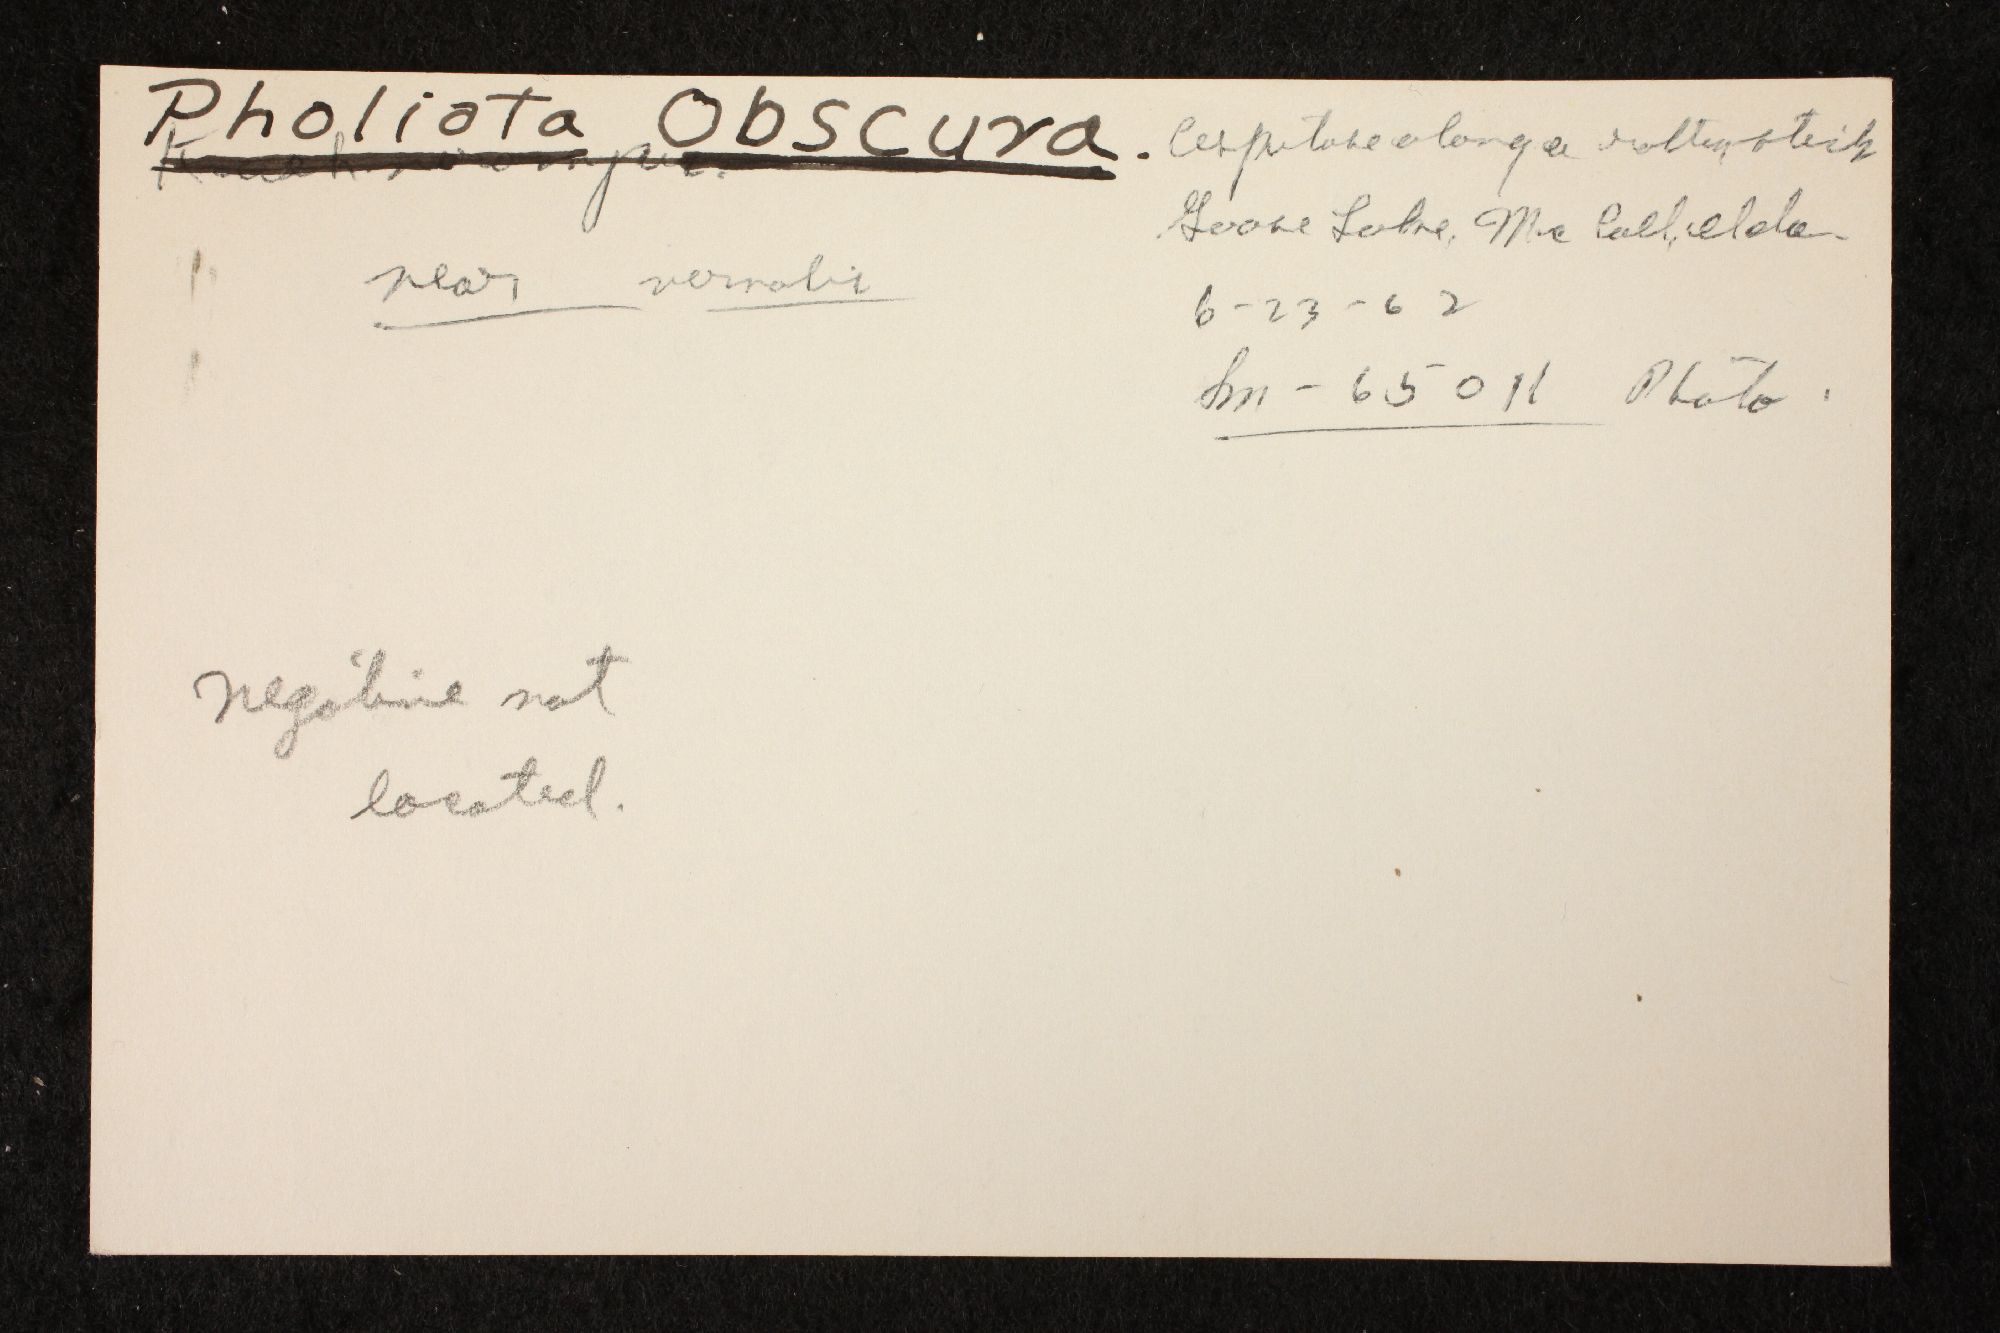 Pholiota Obscura.
near vernalis
Cespitose along a rotten stick
Goose Lake, McCall, Ida
6-23-62
Sm-65011 Photo.
negative not
located.